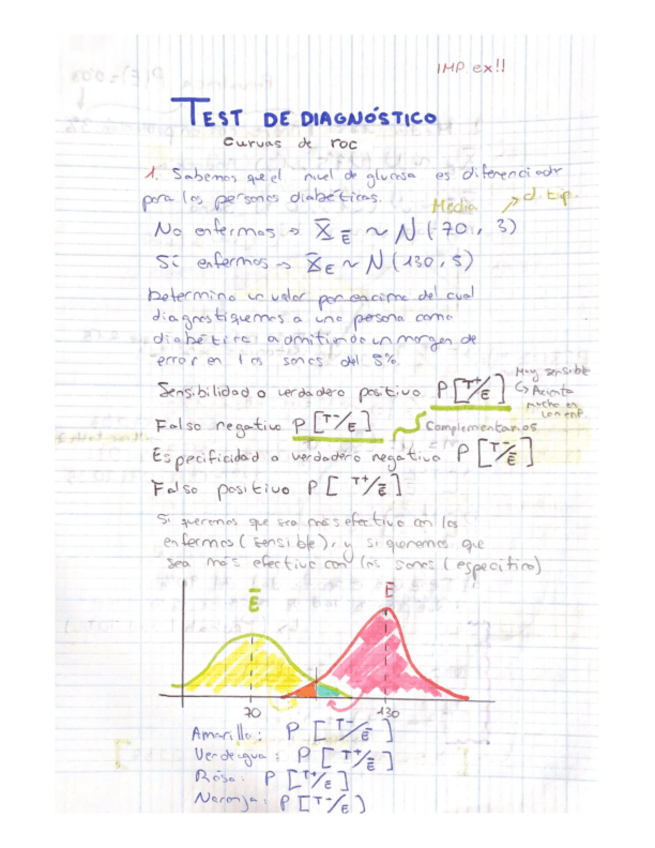 IMP ex!!
TEST DE DIAGNÓSTICO
curvas de roc
1. Sabemos que el nivel de glucosa es diferenciador
para las personas diabéticas.
Media d. tip.
No enfermos → X̄ Ē ~ N (70, 3)
Si enfermos → X̄ E ~ N (130, 5)
Determina un valor por encima del cual
diagnostiquemos a una persona como
diabética admitiendo un margen de
error en los sanos del 5%.
Sensibilidad o verdadero positivo P [T+/E]
Muy sensible
↳ Acierta
mucho en
los enf.
Falso negativo P [T-/E] Complementarios
Especificidad o verdadero negativo P [T-/Ē]
Falso positivo P [T+/Ē]
Si queremos que sea más efectivo con los
enfermos (sensible), y si queremos que
sea más efectivo con los sanos (específico)
Ē E
70 130
Amarillo: P [T-/Ē]
Verdeagua: P [T+/Ē]
Rosa: P [T+/E]
Naranja: P [T-/E)